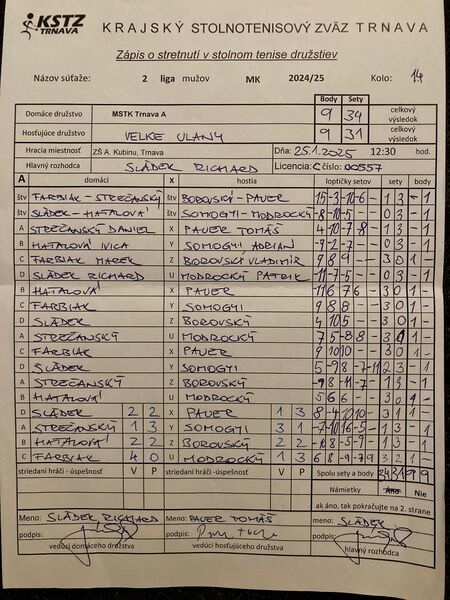 KSTZ TRNAVA KRAJSKÝ STOLNOTENISOVÝ ZVÄZ TRNAVA
Zápis o stretnutí v stolnom tenise družstiev
Názov súťaže: 2 liga mužov MK 2024/25 Kolo: 14
Body Sety
Domáce družstvo MSTK Trnava A 9 34 celkový výsledok
Hosťujúce družstvo VELKE ULANY 9 31 celkový výsledok
Hracia miestnosť ZŠ A. Kubinu, Trnava Dňa: 25.1.2025 12:30 hod.
Hlavný rozhodca SLÁDEK RICHARD Licencia C číslo: 00557
A domáci X hostia loptičky setov sety body
štv FARBIAK - STREČANSKÝ štv BOROVSKÝ - PAUER 15 -3 -10 -6 - 1 3 - 1
štv SLÁDEK - HATALOVÁ štv SOMOGYI - MODROCKÝ -8 -10 -5 0 3 - 1
A STREČANSKÝ DANIEL X PAUER TOMÁŠ 0 3 - 1
B HATALOVÁ IVICA Y SOMOGYI ADRIÁN -9 -2 -7 0 3 - 1
C FARBIAK MAREK Z BOROVSKÝ VLADIMÍR 9 8 9 3 0 1 -
D SLÁDEK RICHARD U MODROCKÝ PATRIK -11 -7 -5 0 3 - 1
B HATALOVÁ X PAUER -11 6 7 6 3 1 -
C FARBIAK Y SOMOGYI 9 8 8 3 0 1 -
D SLÁDEK Z BOROVSKÝ 4 10 5 3 0 1 -
A STREČANSKÝ U MODROCKÝ 7 5 -8 8 3 1 -
C FARBIAK X PAUER 9 10 10 3 0 1 -
D SLÁDEK Y SOMOGYI 5 -9 8 -7 -11 2 3 - 1
A STREČANSKÝ Z BOROVSKÝ -9 8 -11 -7 1 3 - 1
B HATALOVÁ U MODROCKÝ 5 6 6 3 0 1 -
D SLÁDEK 2 2 X PAUER 1 3 8 -4 10 10 3 1 1 -
A STREČANSKÝ 1 3 Y SOMOGYI 3 1 -7 -10 16 -5 1 3 - 1
B HATALOVÁ 2 2 Z BOROVSKÝ 2 2 1 3 - 1
C FARBIAK 4 0 U MODROCKÝ 1 3 6 8 -9 -7 9 3 2 1 -
striedaní hráči - úspešnosť V P striedaní hráči - úspešnosť V P Spolu sety a body 34 31 9 9
Námietky Áno Nie
ak áno, tak pokračujte na 2. strane
Meno: SLÁDEK RICHARD Meno: PAUER TOMÁŠ meno: SLÁDEK
podpis: podpis: podpis:
vedúci domáceho družstva vedúci hosťujúceho družstva hlavný rozhodca